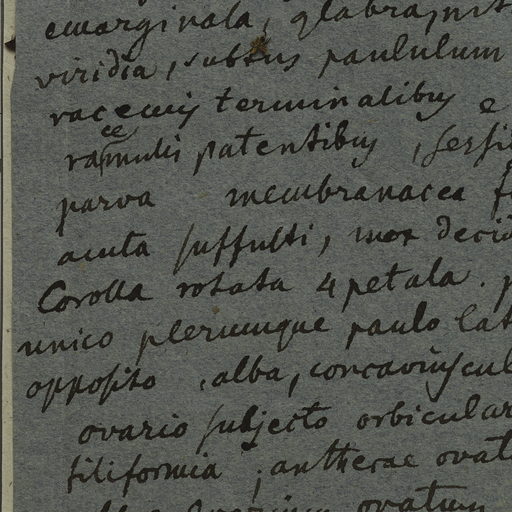 emarginata, glabra, nit
viridia, subtus paululum
racemis terminalibus e
racemulis patentibus, sessil
parva membranacea f
acuta suffulti, mox decid
Corolla rotata 4 petala. p
unico plerumque paulo lat
opposito, alba, concaviuscul
ovario subjecto orbicular
filiformia; antherae ovat
ovatum